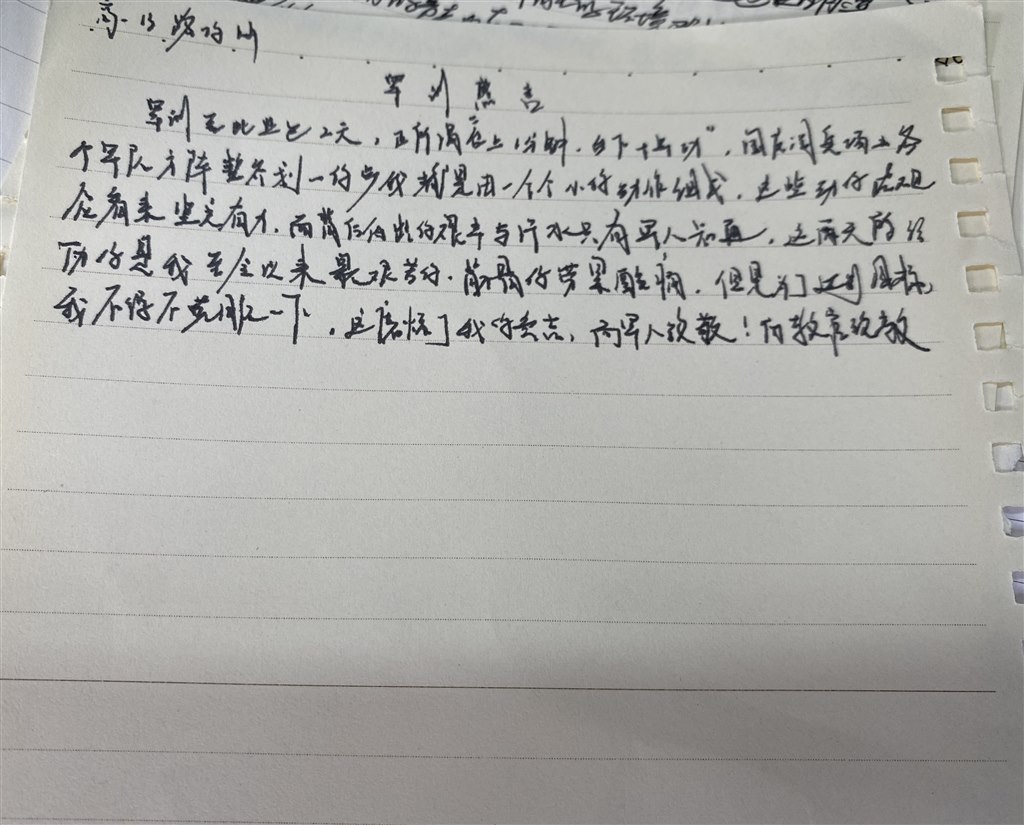 高一13班
军训感言
军训至此业已2天,正所谓“台上1分钟,台下十年功”,国庆阅兵场上各
个军队方阵整齐划一的步伐就是由一个个小的动作组成,这些动作在观
众看来坚定有力,而背后付出的艰辛与汗水只有军人知道,这两天的经
历的是我至今以来最艰苦的,前的苦累酸痛,但见
我不得不克服一下,这磨炼了我的意志,向军人致敬!向教官致敬